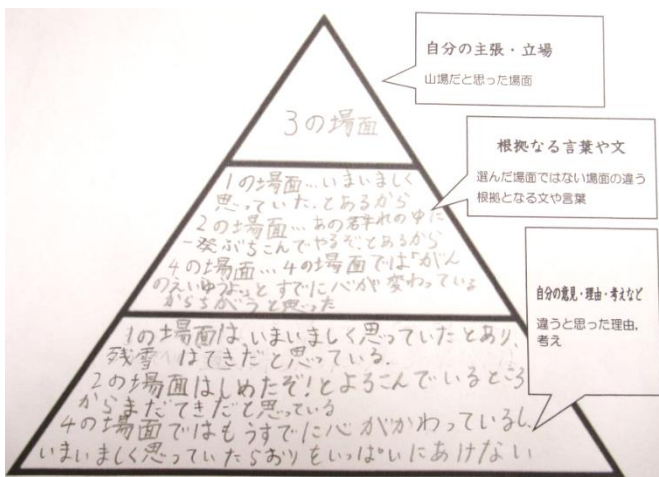 3の場面
1の場面…いまいましく
思っていた。とあるから
2の場面…あの群れの中に
一発ぶちこんでやるぞ。とあるから
4の場面…4の場面では「がん
のえいゆうよ。」とすでに心が変わっている
からちがうと思った
1の場面は、いまいましく思っていたとあり、
残雪はてきだと思っている。
2の場面はしめたぞ!とよろこんでいるところ
からまだてきだと思っている
4の場面ではもうすでに心がかわっているし、
いまいましく思っていたらおりをいっぱいにあけない
自分の主張・立場
山場だと思った場面
根拠なる言葉や文
選んだ場面ではない場面の違う
根拠となる文や言葉
自分の意見・理由・考えなど
違うと思った理由,
考え